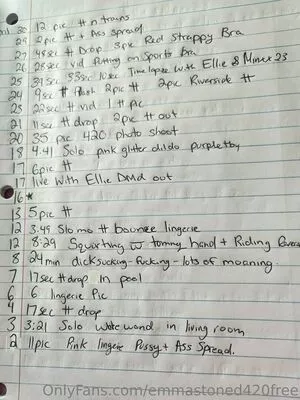 30 12 pic tt n trans
29 2pic tt + Ass spread
27 48sec tt Drop 3pic Red Strappy Bra
26 28sec vid Putting on Sports Bra
25 31sec 53sec 10sec Timelapse with Ellie & Minxx 23
24 9sec tt flash 2pic tt 2pic Riverside tt
23 22sec tt vid 1 tt pic
21 11sec tt drop 2pic tt out
20 35 pic 420 photo shoot
18 4:41 Solo pink glitter dildo purple toy
17 6pic tt
17 live with Ellie DMd out
16*
13 5pic tt
12 3:45 Slomo tt bounce lingerie
12 8:29 Squirting w tommy hand + Riding
8 24min dicksucking - fucking - lots of moaning
7 17sec tt drop in pool
6 6 lingerie Pic
4 17sec tt drop
3 3:21 Solo wand in living room
2 11pic Pink lingerie Pussy + Ass Spread.
OnlyFans.com/emmastoned420free